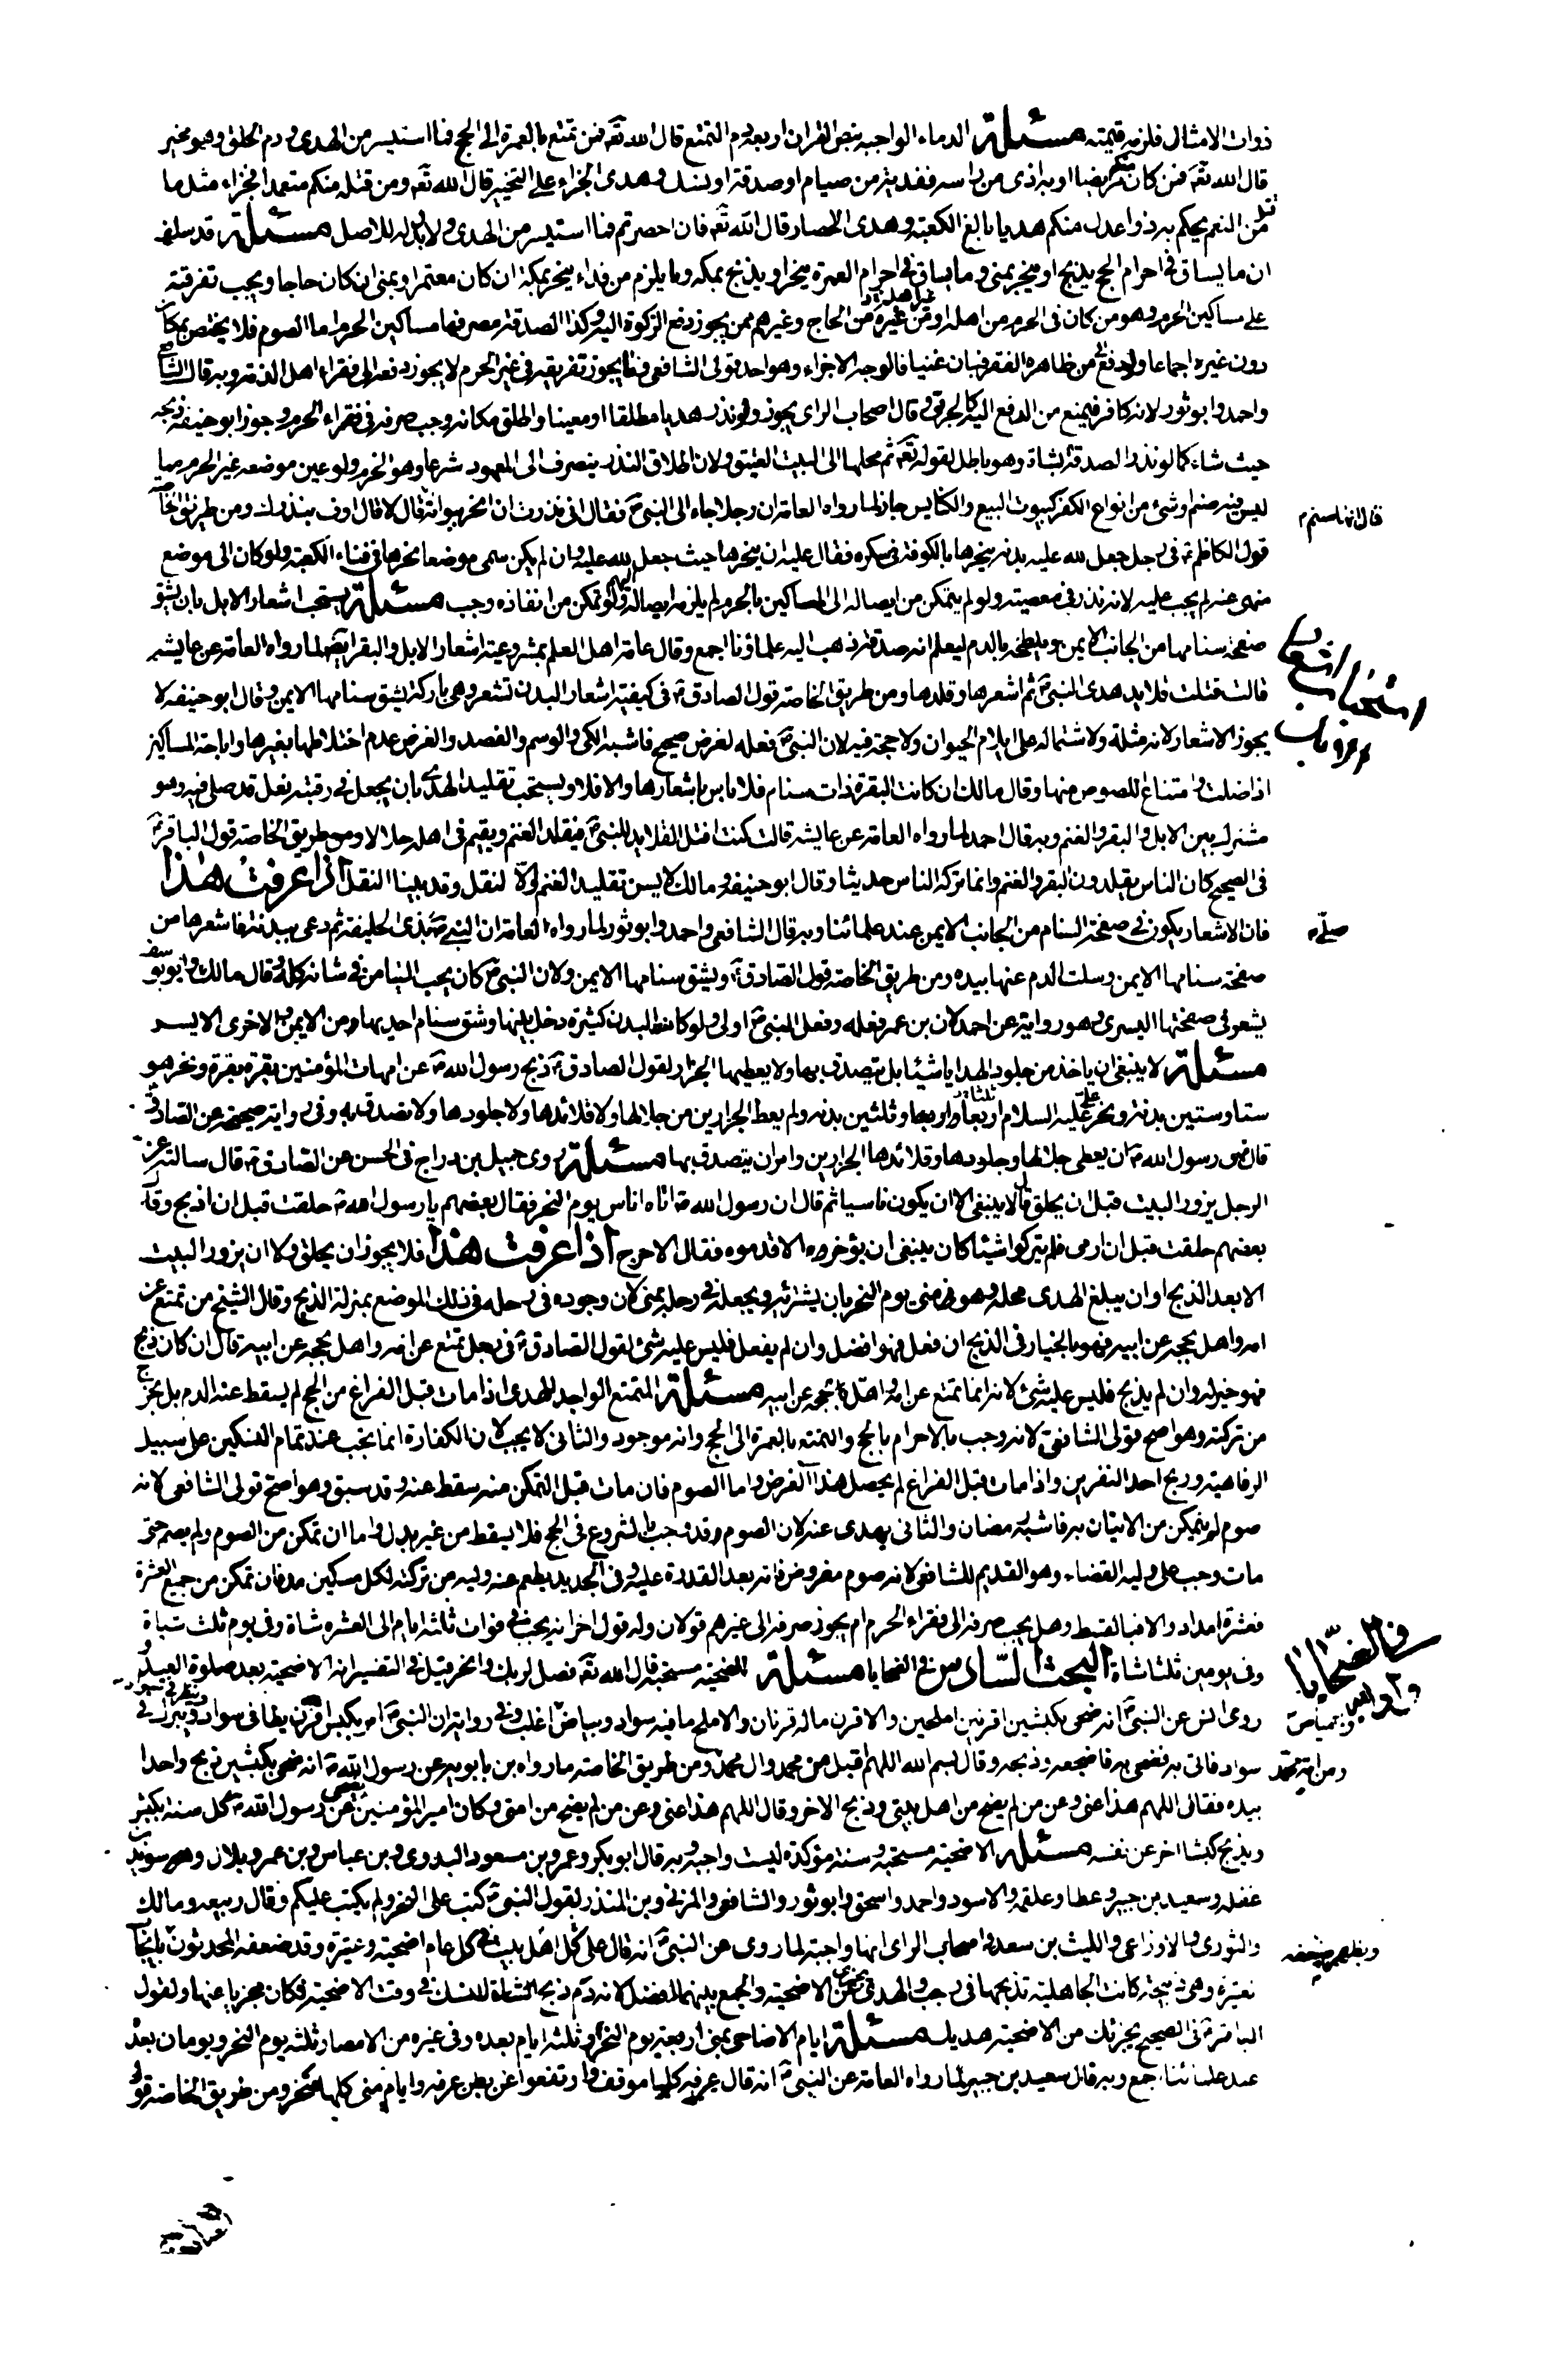 ذوات الامثال فلزمه قيمته مسئلة الدماء الواجبة بنص القران اربعة دم التمتع قال الله تعه فمن تمتع بالعمرة الى الحج فما استيسر من الهدى ودم الحلق وهو مخير
قال الله تعه فمن كان منكم مريضا او به اذى من راسه ففدية من صيام او صدقة او نسك وهدى الجزاء على التخيير قال الله تعه ومن قتله منكم متعمدا فجزاء مثل ما
قتل من النعم يحكم به ذوا عدل منكم هديا بالغ الكعبة وهدى الاحصار قال الله تعه فان احصرتم فما استيسر من الهدى ولا بدل له للاصل مسئلة قد سلف
ان ما يساق فى احرام الحج يذبح او ينحر بمنى وما يساق فى احرام العمرة ينحر او يذبح بمكه وما يلزم من فداء ينحر بمكة ان كان معتمرا وبمنى ان كان حاجا ويجب تفرقته
على مساكين الحرم وهو من كان فى الحرم من اهله او من غير اهله من الحاج وغيرهم ممن يجوز دفع الزكوة اليه وكذا الصدقة مصرفها مساكين الحرم اما الصوم فلا يختص بمكان
دون غيره اجماعا ولو دفع الى من ظاهره الفقر فبان غنيا فالوجه الاجزاء وهو احد قولى الشافعى وما يجوز تفريقه فى غير الحرم لا يجوز دفعه الى فقراء اهل الذمة وبه قال الشافعى
واحمد وابو ثور لانه كافر فيمنع من الدفع اليه كالحربى وقال اصحاب الراى يجوز ولو نذر هديا مطلقا او معينا واطلق مكانه وجب صرفه فى فقراء الحرم وجوز ابو حنيفة ذبحه
حيث شاء كما لو نذر الصدقة بشاة وهو باطل لقوله تعه ثم محلها الى البيت العتيق ولان اطلاق النذر ينصرف الى المعهود شرعا وهو الحرم ولو عين موضعه غير الحرم مما
ليس فيه صنم او شئ من انواع الكفر كبيوت البيع والكنايس جاز لما رواه العامة ان رجلا جاء الى النبى ص فقال انى نذرت ان انحر ببوانة قال لا قال اوف بنذرك ومن طريق الخاصه
قال ابها صنم
قول الكاظم ع فى رجل جعل لله عليه بدنه ينحرها بالكوفة فى شكره فقال عليه ان ينحرها حيث جعل لله عليه وان لم يكن سمى موضعا نحرها فى فناء الكعبة ولو كان الى موضع
منهى عنه لم يجب عليه لانه نذر فى معصيته ولو لم يتمكن من ايصاله الى المساكين بالحرم لم يلزمه ايصاله اليهم ولو تمكن من انفاذه وجب مسئلة يستحب اشعار الابل بان يشق
صفحة سنامها من الجانب الايمن ويلطخه بالدم ليعلم انه صدقة ذهب اليه علماؤنا اجمع وقال عامة اهل العلم بمشروعية اشعار الابل والبقر ايضا لما رواه العامة عن عايشه
استحباب اشعار
قالت فتلت قلايد هدى النبى ص ثم اشعرها وقلدها ومن طريق الخاصه قول الصادق ع فى كيفية اشعار البدن تشعر وهى باركة يشق سنامها الايمن وقال ابو حنيفه لا
يجوز الاشعار لانه مثلة ولاشتماله على ايلام الحيوان ولا حجة فيه لان النبى ص فعله لغرض صحيح فاشبه الكى والوسم والفصد والغرض عدم اختلاطها بغيرها واباحة المساكين
اذا ضلت وامتناع اللصوص منها وقال مالك ان كانت البقرة ذات سنام فلا باس باشعارها والا فلا ويستحب تقليد الهدى بان يجعل فى رقبته نعل قد صلى فيه وهو
مشترك بين الابل والبقر والغنم وبه قال احمد لما رواه العامه عن عايشه قالت كنت افتل القلايد للنبى ص فيقلد الغنم ويقيم فى اهله حلالا ومن طريق الخاصة قول الباقر ع
فى الصحيح كان الناس يقلدون البقر والغنم وانما تركه الناس حديثا وقال ابو حنيفه ومالك لا يسن تقليد الغنم والا لنقل وقد بينا النقل اذا عرفت هذا
فان الاشعار يكون فى صفحة السنام من الجانب الايمن عند علمائنا وبه قال الشافعى واحمد وابو ثور لما رواه العامة ان النبى ص بذى الحليفة ثم دعى ببدنة فاشعرها من
صلى
صفحة سنامها الايمن وسلت الدم عنها بيده ومن طريق الخاصه قول الصادق ع ويشق سنامها الايمن ولان النبى ص كان يحب التيامن فى شانه كله وقال مالك وابو يوسف
يشعر فى صفحتها اليسرى وهو رواية عن احمد لان بن عمر فعله وفعل النبى ص اولى ولو كانت البدن كثيرة دخل بينها وشق سنام احديها من الايمن والاخرى الايسر
مسئلة لا ينبغى ان ياخذ من جلود الهدايا شيئا بل يتصدق بها ولا يعطيها الجزار لقول الصادق ع ذبح رسول الله ص عن امهات المؤمنين بقرة بقرة ونحر هو
ستا وستين بدنة ونحر على عليه السلام اربعا وثلثين بدنه ولم يعط الجزارين من جلالها ولا قلائدها ولا جلودها ولا تصدق به وفى رواية صحيحه عن الصادق
قال نهى رسول الله ص ان يعطى جلالها وجلودها وقلائدها الجزارين وامر ان يتصدق بها مسئلة روى جميل بن دراج فى الحسن عن الصادق ع قال سالته عن
الرجل يزور البيت قبل ان يحلق قال لا ينبغى الا ان يكون ناسيا ثم قال ان رسول الله ص اتاه اناس يوم النحر فقال بعضهم يا رسول الله ص حلقت قبل ان اذبح وقال
بعضهم حلقت قبل ان ارمى فلم يتركوا شيئا كان ينبغى ان يؤخروه الا قدموه فقال لا حرج اذا عرفت هذا فلا يجوز ان يحلق ولا ان يزور البيت
الا بعد الذبح او ان يبلغ الهدى محله وهو منى يوم النحر بان يشتريه ويجعله فى رحله بمنى لان وجوده فى رحله فى ذلك الموضع بمنزلة الذبح وقال الشيخ من تمتع عن
امه واهل بحجه عن ابيه فهو بالخيار فى الذبح ان فعل فهو افضل وان لم يفعل فليس عليه شئ لقول الصادق ع فى رجل تمتع عن امه واهل بحجه عن ابيه قال ان كان ذبح
فهو خير له وان لم يذبح فليس عليه شئ لانه انما تمتع عن امه واهل بحجه عن ابيه مسئلة المتمتع الواجد للهدى اذا مات قبل الفراغ من الحج لم يسقط عنه الدم بل يخرج
من تركته وهو اصح قولى الشافعى لانه وجب بالاحرام بالحج والتمتع بالعمرة الى الحج وانه موجود والثانى لا يجب لان الكفارة انما يجب عند تمام النسكين على سبيل
الرفاهية وربح احد السفرين واذا مات قبل الفراغ لم يحصل هذا الغرض واما الصوم فان مات قبل التمكن منه سقط عنه وقد سبق وهو اصح قولى الشافعى لانه
صوم لم يتمكن من الاتيان به فاشبه رمضان والثانى يهدى عنه لان الصوم قد وجب بالشروع فى الحج فلا يسقط من غير بدل واما ان تمكن من الصوم ولم يصم حتى
مات وجب على وليه القضاء وهو القديم للشافعى لانه صوم مفروض فاته بعد القدرة عليه وفى الجديد يطعم عنه وليه من تركته لكل مسكين مد فان تمكن من جميع العشرة
فعشرة امداد والا فبالقسط وهل يجب صرفه الى فقراء الحرم ام يجوز صرفه الى غيرهم قولان وله قول اخر انه يجب فى فوات ثلثة ايام الى العشره شاة وفى يوم ثلث شاة
وفى يومين ثلثا شاة البحث السادس فى الضحايا مسئلة الاضحية مستحبة قال الله تعه فصل لربك وانحر قيل فى التفسير انه الاضحية بعد صلوة العيد و
فى الضحايا
روى انس عن النبى ص انه ضحى بكبشين اقرنين املحين والاقرن ماله قرنان والاملح ما فيه سواد وبياض والبياض اغلب وفى رواية ان النبى ص امر بكبش اقرن يطا فى سواد وينظر فى سواد ويبرك فى
سواد فاتى به فضحى به فاضجعه وذبحه وقال بسم الله اللهم تقبل من محمد وال محمد ومن طريق الخاصة ما رواه بن بابويه عن رسول الله ص انه ضحى بكبشين ذبح واحدا
ومن امة محمد
بيده فقال اللهم هذا عنى وعن من لم يضح من اهل بيتى وذبح الاخر وقال اللهم هذا عنى وعن من لم يضح من امتى وكان امير المؤمنين ع يضحى عن رسول الله ص كل سنة بكبش
ويذبح كبشا اخر عن نفسه مسئله الاضحية مستحبة وسنة مؤكدة ليست واجبة وبه قال ابو بكر وعمر وبن مسعود البدرى وبن عباس وبن عمر وبلال وهو سويد بن
غفله وسعيد بن جبير وعطا وعلقمه والاسود واحمد واسحق وابو ثور والشافعى والمزنى وبن المنذر لقول النبى ص كتب على النحر ولم يكتب عليكم وقال ربيعه ومالك
والثورى والاوزاعى والليث بن سعد واصحاب الراى انها واجبة لما روى عن النبى ص انه قال على كل اهل بيت فى كل عام اضحية وعتيرة وقد ضعفه المحدثون بايجاب
ويظهر ضعفه
عتيرة وهى ذبيحة كانت الجاهلية تذبحها فى رجب والهدى يجزى عن الاضحية والجمع بينهما افضل لانه دم ذبح الشاة للنسك فى وقت الاضحية فكان مجزيا عنها ولقول
الباقر ع فى الصحيح يجزئك من الاضحية هديك مسئلة ايام الاضاحى بمنى اربعة يوم النحر وثلثه ايام بعده وفى غيره من الامصار ثلثه يوم النحر ويومان بعده
عند علمائنا اجمع وبه قال سعيد بن جبير لما رواه العامة عن النبى ص انه قال عرفه كلها موقف وارتفعوا عن بطن عرفه وايام منى كلها منحر ومن طريق الخاصة قول